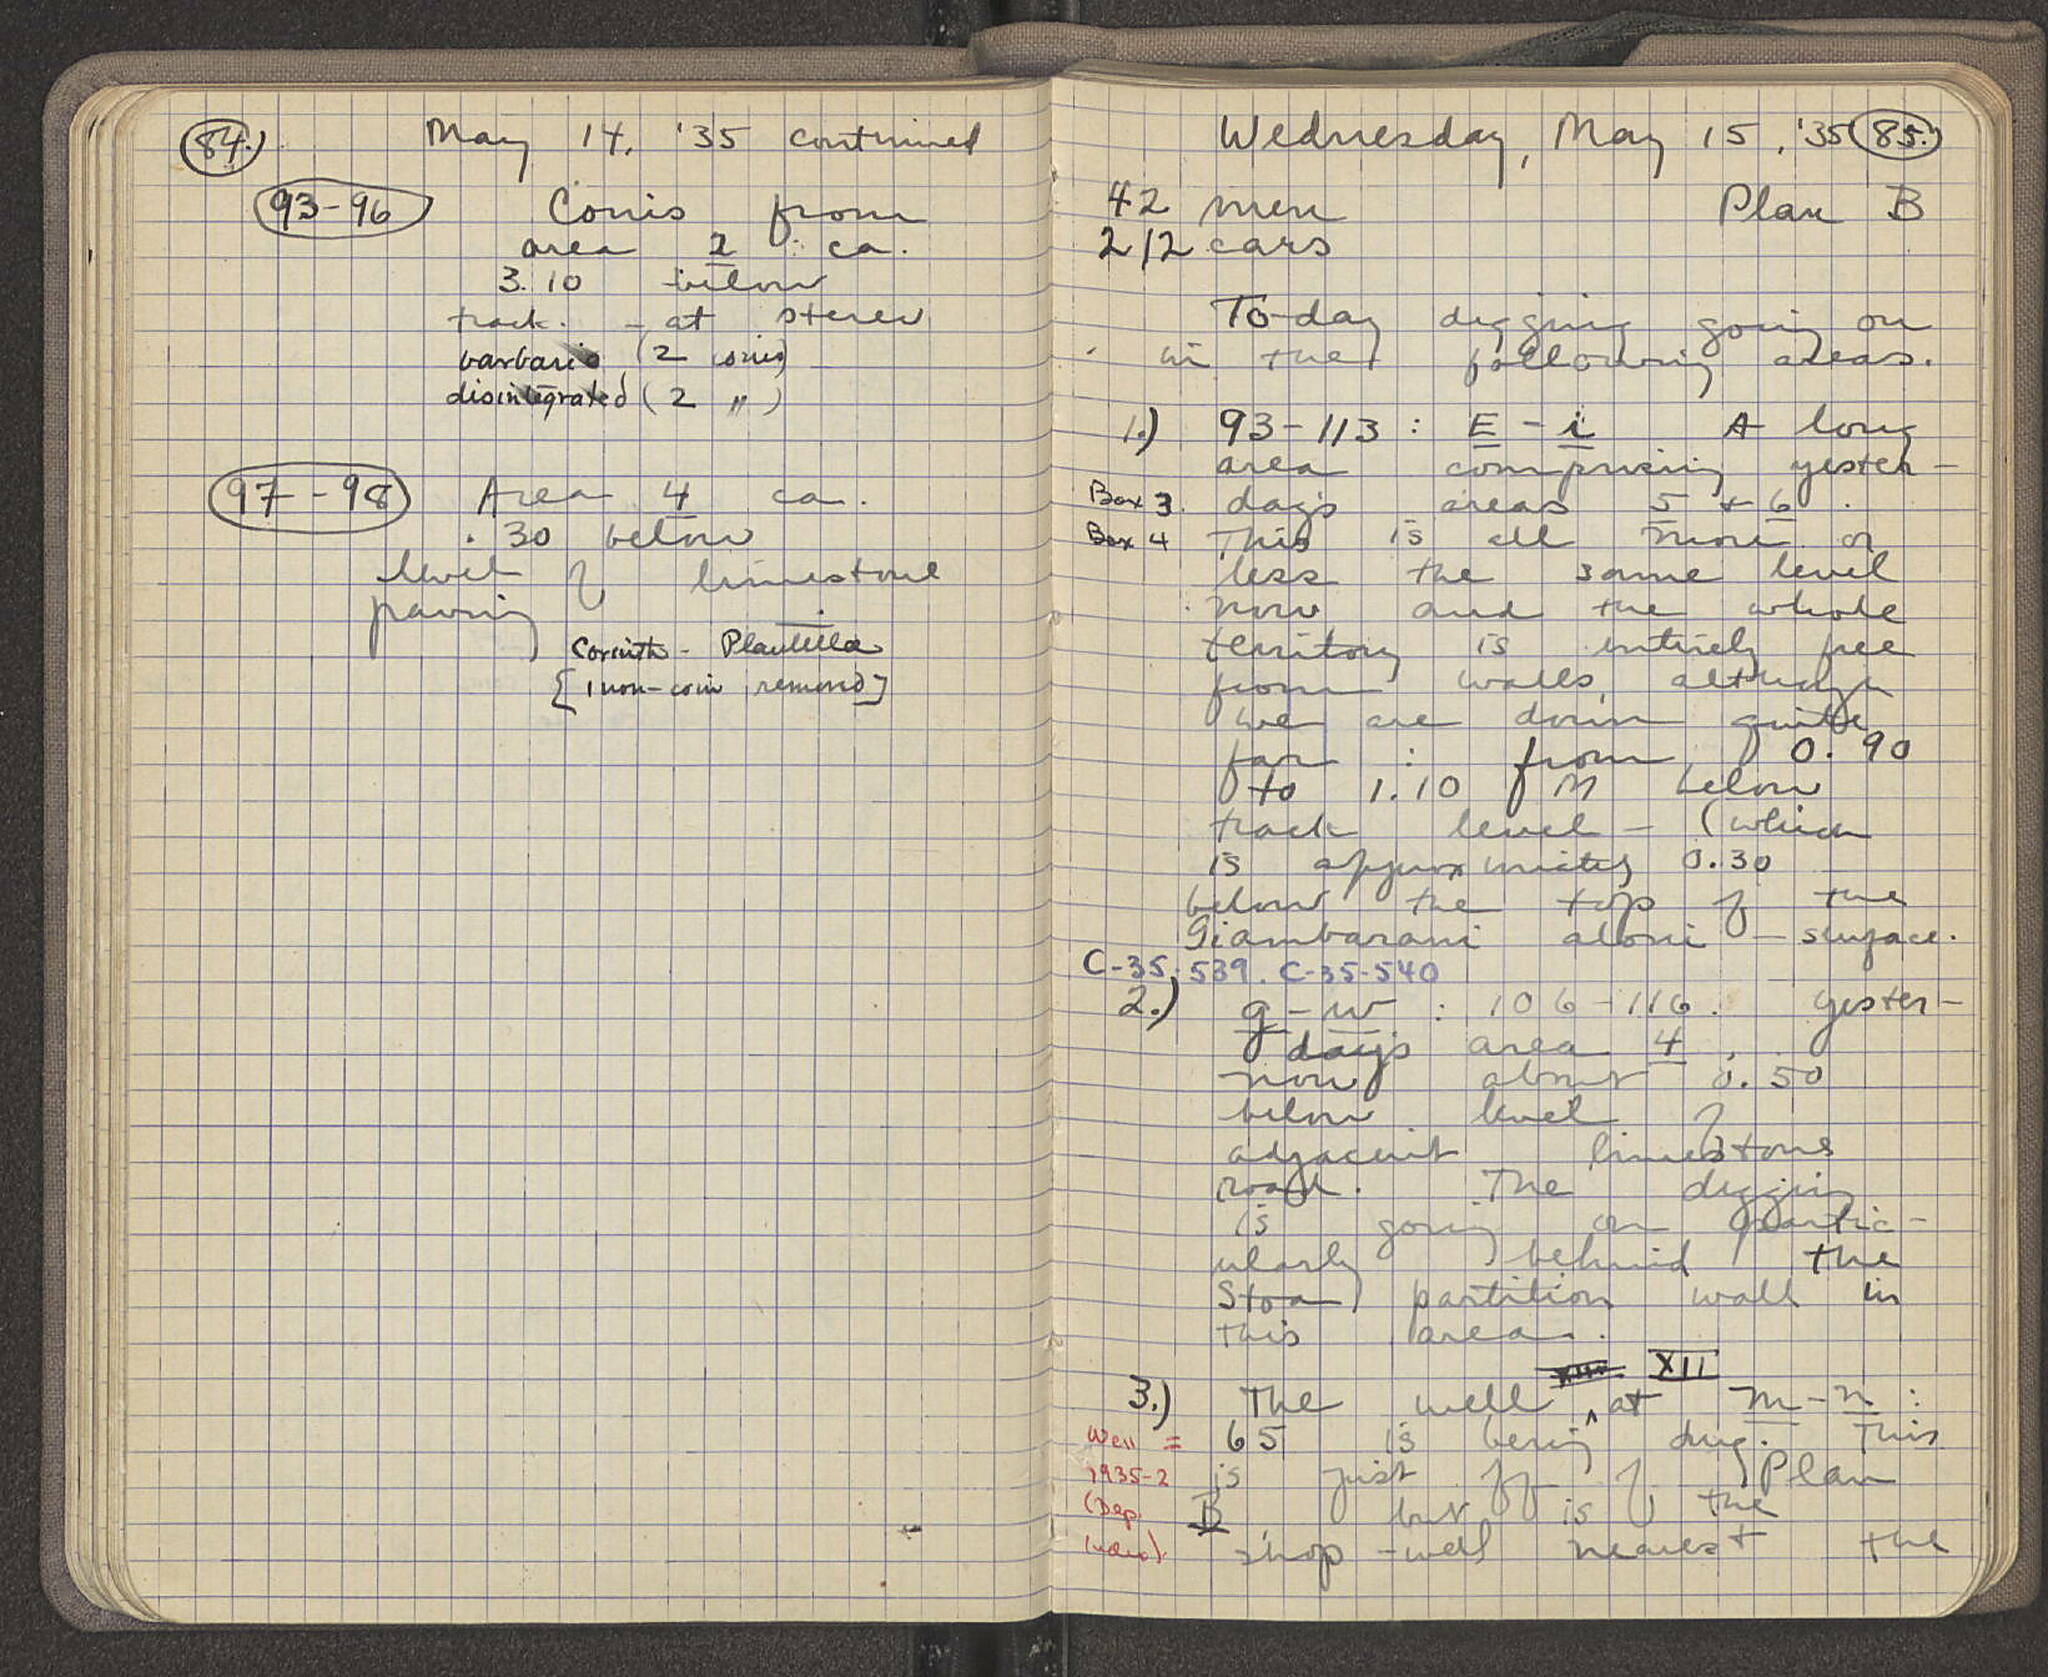 84.) May 14, '35 continued
93-96 Coins from
area 2 ca.
3.10 below
track. - at sterea
barbaric (2 coins)
disintegrated (2 〃)
97-98 Area 4 ca.
.30 below
level of limestone
paving
Corinth - Plautilla
[1 non-coin removed]
Wednesday, May 15, '35 85.
42 men Plan B
212 cars
To-day digging going on
in the following areas.
1.) 93-113 : E - i A long
area comprising yester-
Box 3. day's areas 5 + 6.
Box 4 This is all more or
less the same level
now and the whole
territory is entirely free
from walls, although
we are down quite
far : from 0.90
to 1.10 M below
track level - (which
is approximately 0.30
below the top of the
Giambarani aloni - surface.
C-35-539. C-35-540
2.) g-w : 106-116. yester-
day's area 4,
now about 0.50
below level of
adjacent limestone
road. The digging
is going on partic-
ularly behind the
Stoa partition wall in
this area.
XII
3.) The well ^ at m-n :
Well = 65 is being dug. This
1935-2 is just off of Plan
(Dep. B, but is of the
Index). shop-well nearest the